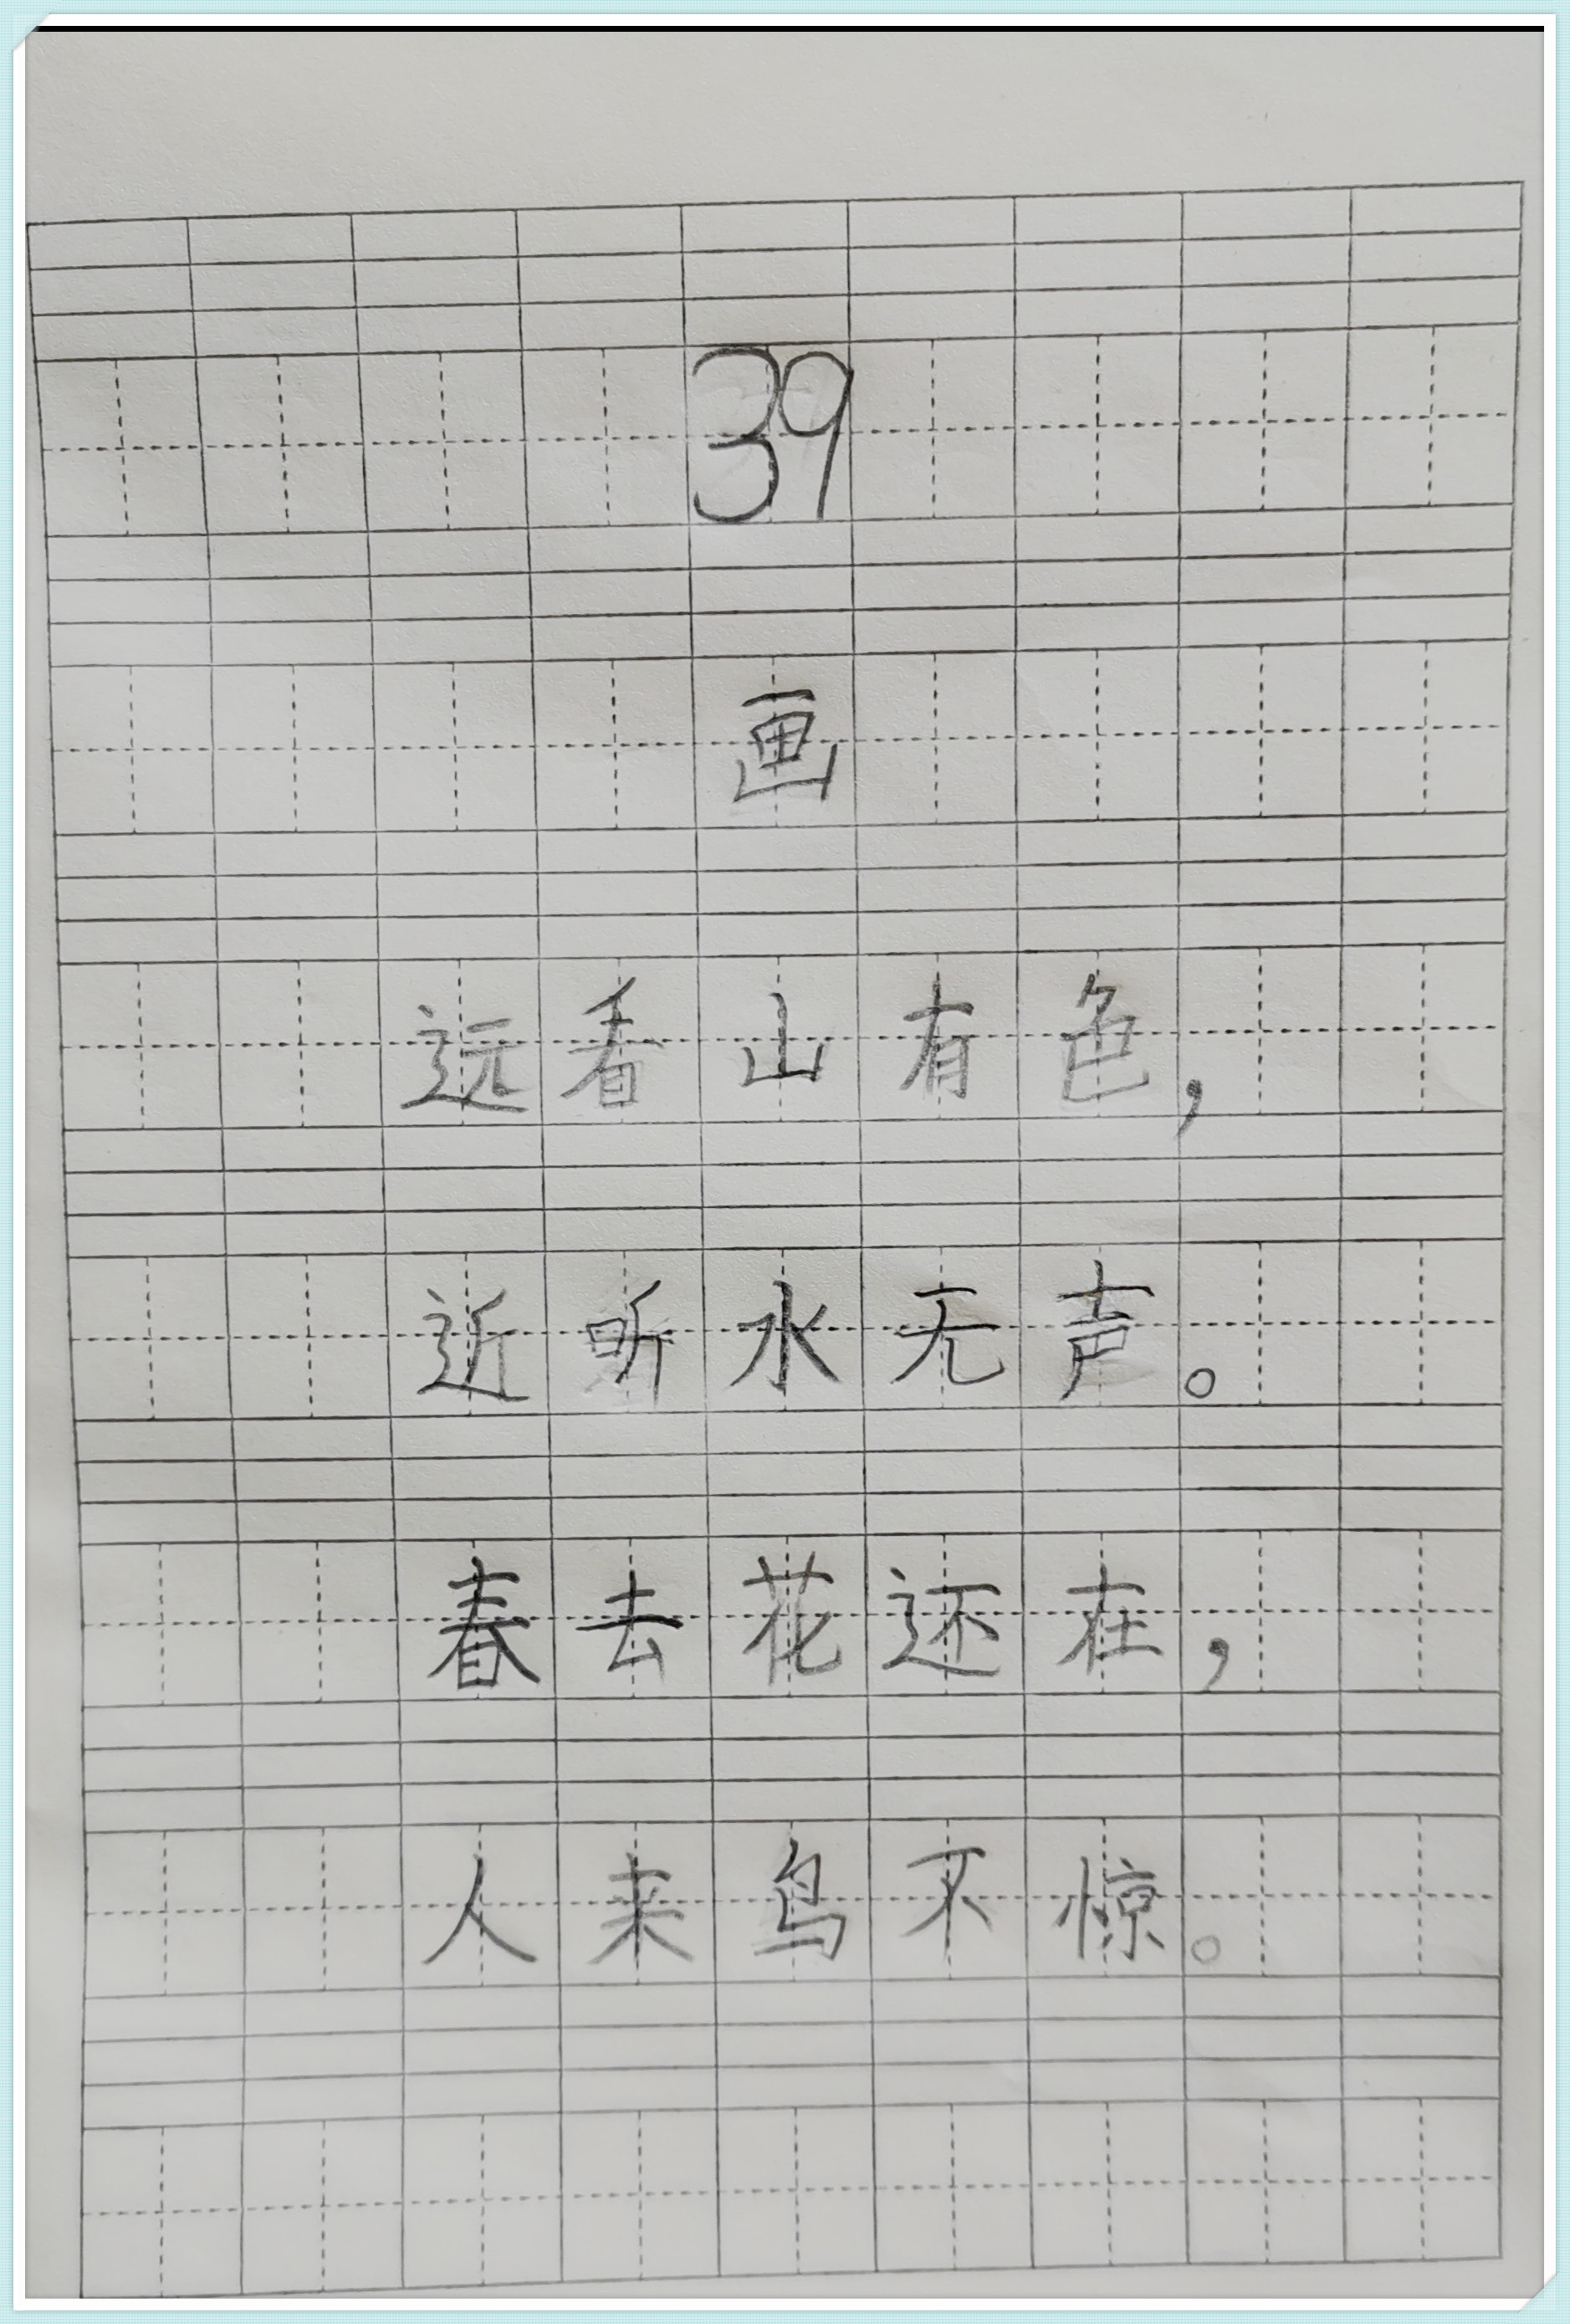 39
画
远看山有色，
近听水无声。
春去花还在，
人来鸟不惊。